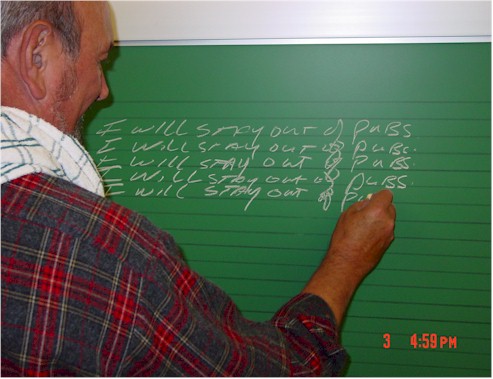 I WILL STAY OUT of PUBS
I WILL STAY OUT of PUBS.
I WILL STAY OUT of PUBS.
I WILL STAY OUT of PUBS.
I WILL STAY OUT of PU
3 4:59PM